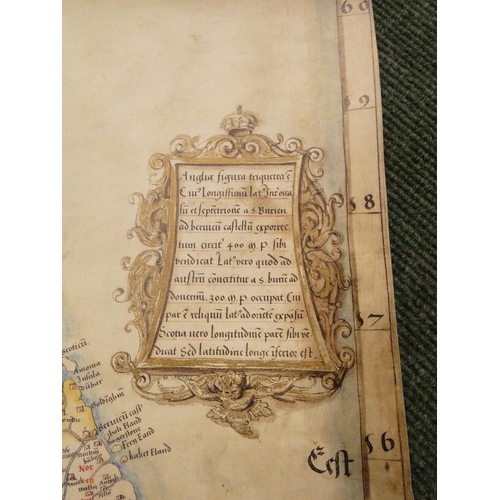 Angliæ figura triquetra ē
Cui⁹ longissimū lat⁹ Int' occa
sū et septētrionē a.s. Burien
ad beruicū castellū exporrec
tum circit' 400 M. P. sibi
vendicat Lat⁹ vero quod ad
austrū cōuertitur a s. buriē ad
douernū .300. M. P. occupat, Cui
par ē reliquū lat⁹ ad oriētē expāsū
Scotia vero longitudinē parē sibi vē
dicat Sed latitudine longe inferior est.
69
68
67
66
Est
Scoticū.
Insula
Beruicū cast'
hali Eland
Fern Eand
kaket Eland
Nor
th